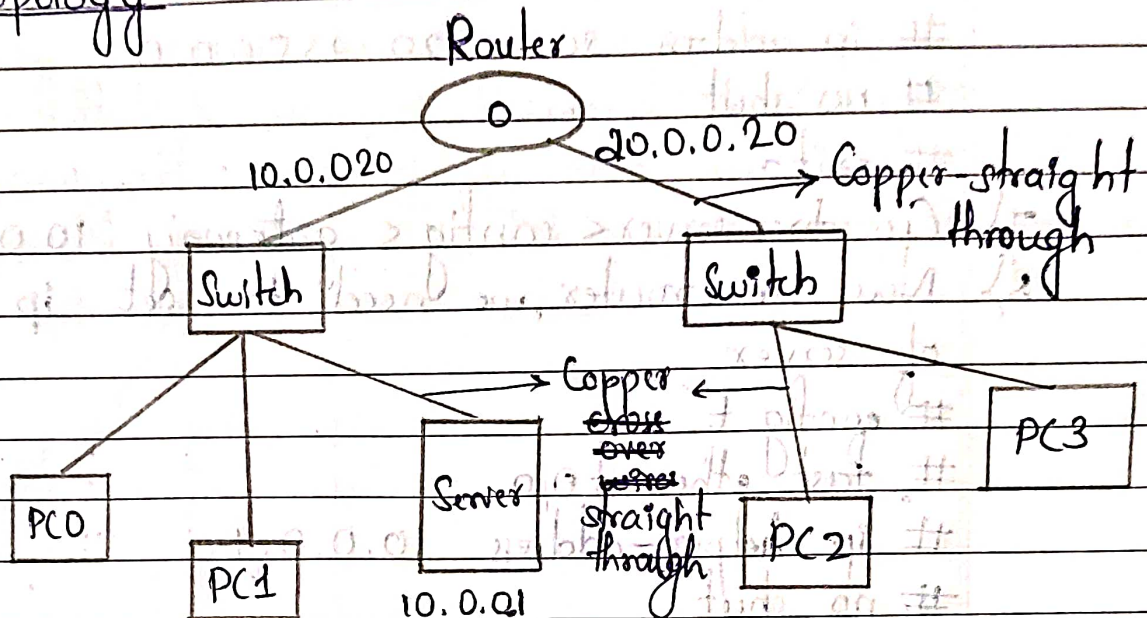 Topology
Router
0
10.0.020
20.0.0.20
Copper-straight
through
Switch
Switch
Copper
cross
over
wires
straight
through
PC0
PC1
Server
10.0.01
PC2
PC3